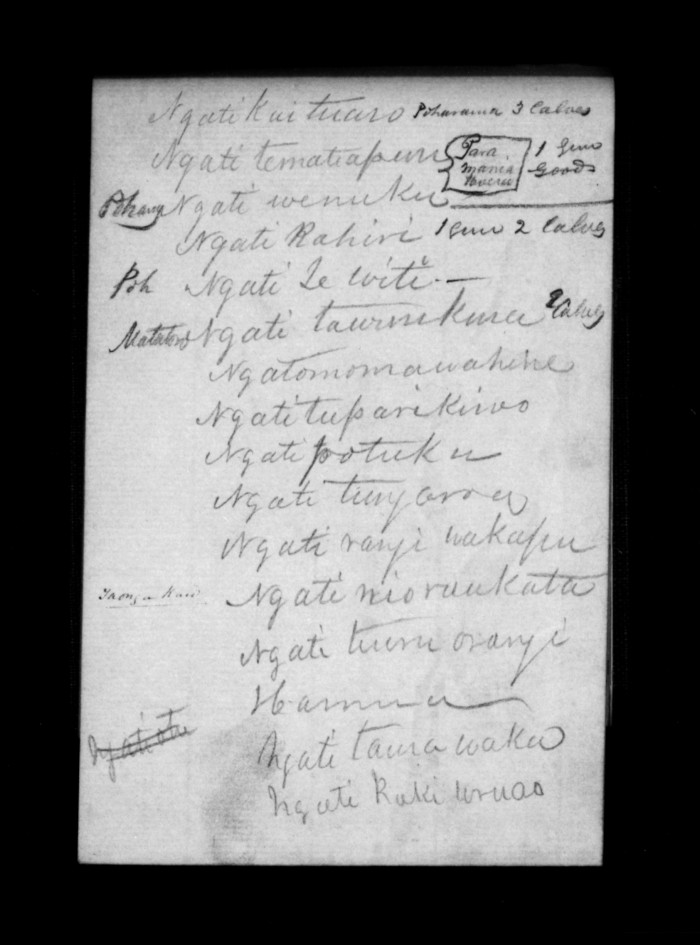 Ngati Kuituaro Poharama 3 Calves
Ngati tematiapuru Para mania 1 Gun Goods
Ngati wenuku
Ngati Rahiri 1 Gun 2 Calves
Poh Ngati Te witi —
Ngati taurukura 2 Calves
Ngatomomawahine
Ngati tuparikino
Ngati potuku
Ngati tungarou
Ngati rangi wakapu
Ngati rioraukata
Ngati tuuru orangi
Hamua
Ngati otu Ngati taura waka
Ngati Raki wruao